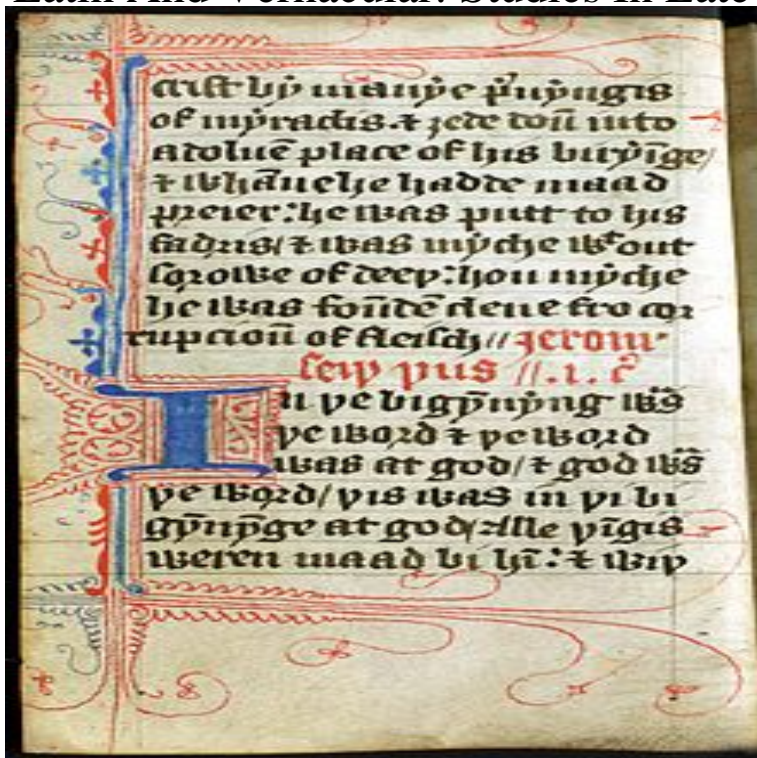 Latin And Vernacular: Studies In Late
crist bẏ manẏe p͛uẏngis
of mẏraclis. ⁊ ȝede doũ in to
a doluẽ place of his biriẏĩge/
⁊ whãne he hadde maad
preier: he was putt to his
fadris/ ⁊ was mẏche wᵗ out
sorowe of deeþ: hou mẏche
he was foũdẽ clene fro cor
rupcioũ of fleisch // Jerom
seiþ þus //. 1. c̃
In þe bigẏñẏng was
þe word ⁊ þe word
was at god/ ⁊ god was
þe word/ þis was in þi bi
gẏñẏge at god/ Alle þĩgis
weren maad bi hĩ: ⁊ wiþ